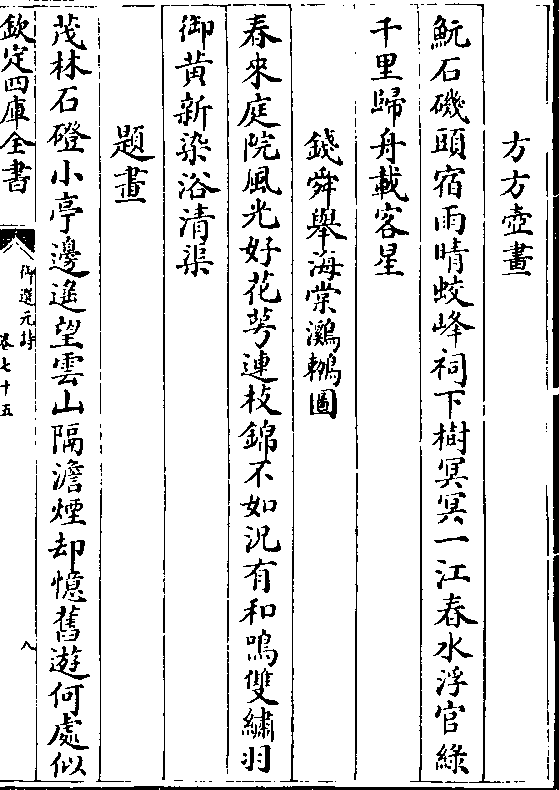 方方壺畫
魭石磯頭宿雨晴蛟峰祠下樹冥冥一江春水浮官綠
千里歸舟載客星
錢舜舉海棠鸂鶒圖
春來庭院風光好花萼連枝錦不如況有和鳴雙繡羽
御黃新染浴清渠
題畫
茂林石磴小亭邊遙望雲山隔澹煙却憶舊遊何處似
欽定四庫全書
御選元詩
卷七十五
八